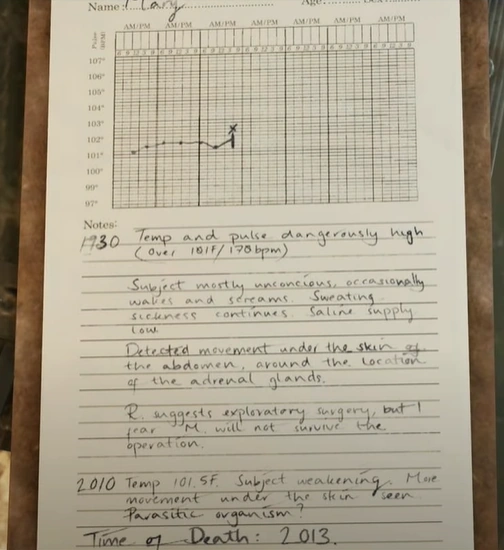 Name: Mary Age:
AM/PM AM/PM AM/PM AM/PM AM/PM AM/PM AM/PM
Pulse
107°
106°
105°
104°
103°
102°
101°
100°
99°
97°
Notes:
1930 Temp and pulse dangerously high
(Over 101F/170bpm)
Subject mostly unconcious, occasionally
wakes and screams. Sweating
sickness continues. Saline supply
low.
Detected movement under the skin of
the abdomen, around the location
of the adrenal glands.
R. suggests exploratory surgery, but I
fear M. will not survive the
operation.
2010 Temp 101.5F. Subject weakening. More
movement under the skin seen.
Parasitic organism?
Time of Death: 2013.